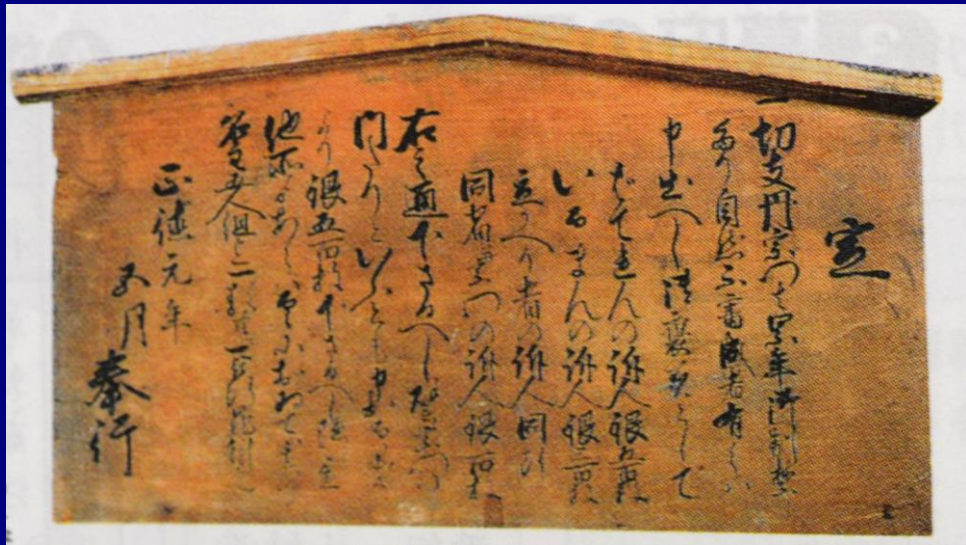 定
一切支丹宗門は累年御制禁
たり自然不審成者有之ハ
申出へし御褒美として
はてれんの訴人銀五百枚
いるまんの訴人銀三百枚
立かへり者の訴人同断
同宿宗門の訴人銀百枚
右之通下さるへし宗門の
内たりといふとも申出る品に
より銀五百枚下さるへし隠し置
他所よりあらハるゝにおゐてハ其所
名主五人組迄一類
正徳元年
五月
奉行